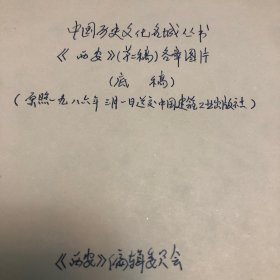 中国历史文化名城丛书
《西安》(第二稿)各章图片
(底稿)
(原照一九八六年三月一日送交中国建筑工业出版社)
《西安》编辑委员会